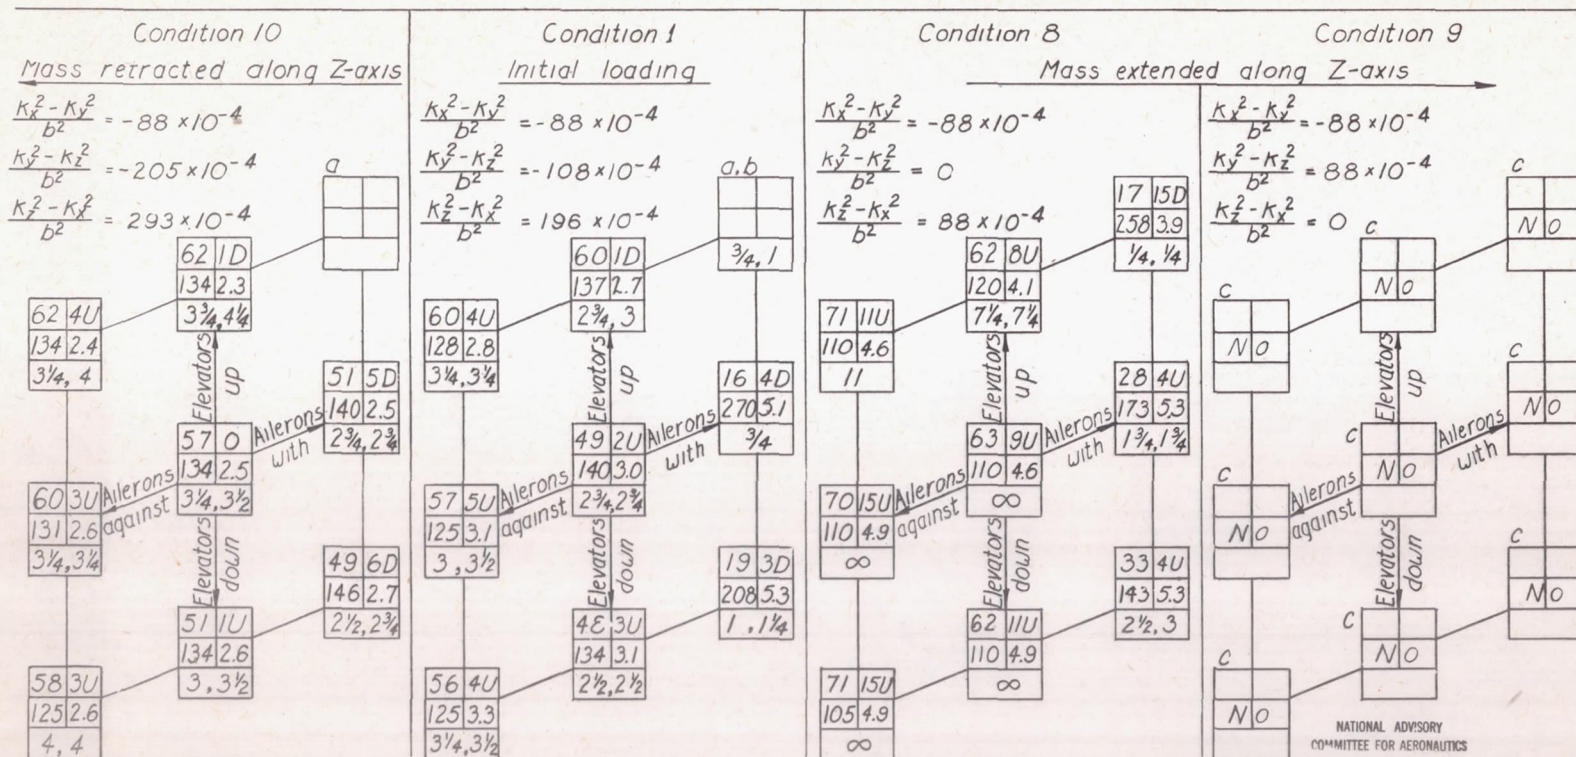 Condition 10
Mass retracted along Z-axis
Kx² - Ky² / b² = -88 × 10⁻⁴
Ky² - Kz² / b² = -205 × 10⁻⁴
Kz² - Kx² / b² = 293 × 10⁻⁴
a
62 1D
134 2.3
3¾, 4¼
62 4U
134 2.4
3¼, 4
Elevators up
51 5D
140 2.5
2¾, 2¾
Ailerons with
57 0
134 2.5
3¼, 3½
Ailerons against
60 3U
131 2.6
3¼, 3¼
Elevators down
49 6D
146 2.7
2½, 2¾
51 1U
134 2.6
3, 3½
58 3U
125 2.6
4, 4
Condition 1
Initial loading
Kx² - Ky² / b² = -88 × 10⁻⁴
Ky² - Kz² / b² = -108 × 10⁻⁴
Kz² - Kx² / b² = 196 × 10⁻⁴
a,b
¾, 1
60 1D
137 2.7
2¾, 3
60 4U
128 2.8
3¼, 3¼
Elevators up
16 4D
270 5.1
¾
Ailerons with
49 2U
140 3.0
2¾, 2¾
Ailerons against
57 5U
125 3.1
3, 3½
Elevators down
19 3D
208 5.3
1, 1¼
3U
134 3.1
2½, 2½
56 4U
125 3.3
3¼, 3½
Condition 8
Mass extended along Z-axis
Kx² - Ky² / b² = -88 × 10⁻⁴
Ky² - Kz² / b² = 0
Kz² - Kx² / b² = 88 × 10⁻⁴
17 15D
258 3.9
¼, ¼
62 8U
120 4.1
7¼, 7¼
71 11U
110 4.6
11
Elevators up
28 4U
173 5.3
1¾, 1¾
Ailerons with
63 9U
110 4.6
∞
Ailerons against
70 15U
110 4.9
∞
Elevators down
33 4U
143 5.3
2½, 3
62 11U
110 4.9
∞
71 15U
105 4.9
∞
Condition 9
Kx² - Ky² / b² = -88 × 10⁻⁴
Ky² - Kz² / b² = 88 × 10⁻⁴
Kz² - Kx² / b² = 0
c
N O
c
N O
c
N O
Elevators up
c
N O
Ailerons with
c
N O
Ailerons against
c
N O
Elevators down
c
N O
c
N O
c
N O
NATIONAL ADVISORY
COMMITTEE FOR AERONAUTICS